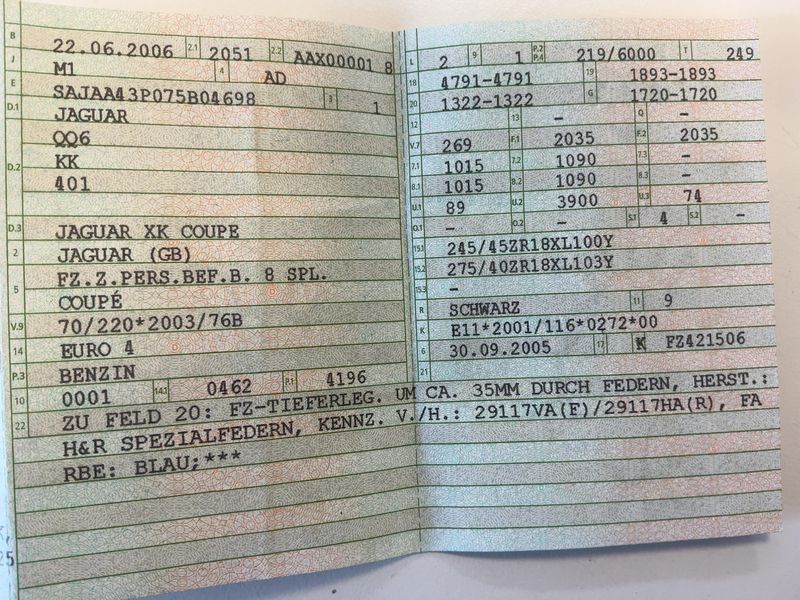 B 22.06.2006 2.1 2051 2.2 AAX00001 8
J M1 4 AD
E SAJAA43P075B04698 3 1
D.1 JAGUAR
QQ6
D.2 KK
401
D.3 JAGUAR XK COUPE
2 JAGUAR (GB)
FZ.Z.PERS.BEF.B. 8 SPL.
5 COUPÉ
V.9 70/220*2003/76B
14 EURO 4
P.3 BENZIN
10 0001 14.1 0462 P.1 4196
L 2 9 1 P.2 P.4 219/6000 T 249
18 4791-4791 19 1893-1893
20 1322-1322 G 1720-1720
12 13 - Q -
V.7 269 F.1 2035 F.2 2035
7.1 1015 7.2 1090 7.3 -
8.1 1015 8.2 1090 8.3 -
U.1 89 U.2 3900 U.3 74
O.1 - O.2 - S.1 4 S.2 -
15.1 245/45ZR18XL100Y
15.2 275/40ZR18XL103Y
15.3 -
R SCHWARZ 11 9
K E11*2001/116*0272*00
6 30.09.2005 17 K FZ421506
21
22 ZU FELD 20: FZ-TIEFERLEG. UM CA. 35MM DURCH FEDERN, HERST.:
H&R SPEZIALFEDERN, KENNZ. V./H.: 29117VA(F)/29117HA(R), FA
RBE: BLAU;***
25